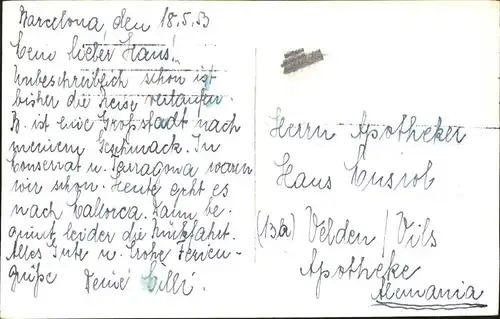 Barcelona, den 18.5.53
Mein lieber Hans!
Unbeschreiblich schön ist
bisher die Reise verlaufen.
B. ist eine Großstadt nach
meinem Geschmack. In
Monserrat u. Tarragona waren
wir schon. Heute geht es
nach Mallorca. Dann be-
ginnt leider die Rückfahrt.
Alles Gute u. frohe Ferien-
grüße Deine Cilli.
Herrn Apotheker
Hans
(13a) Velden / Vils
Apotheke
Alemania